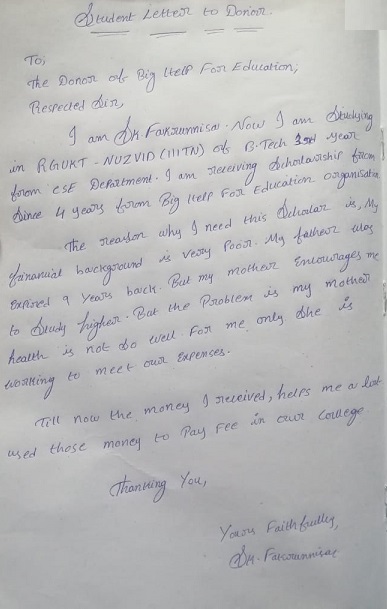 Student Letter to Donor.
To,
The Donor of Big Help For Education,
Respected Sir,
I am Sk Fakrunnisa. Now I am Studying
in RGUKT-NUZVID (IIITN) of B.Tech 3rd year
from CSE Department. I am receiving Scholarship from
Since 4 years form Big Help For Education Organisation
The reason why I need this Scholar is, My
financial background is very Poor. My father was
Expired 9 years back. But my mother Encourages me
to Study higher. But the Problem is my mother
health is not so well. For me only She is
working to meet our Expenses.
Till now the money I received, helps me a lot
used those money to Pay Fee in our College
Thanking You,
Yours Faithfully,
Sk. Fakrunnisa